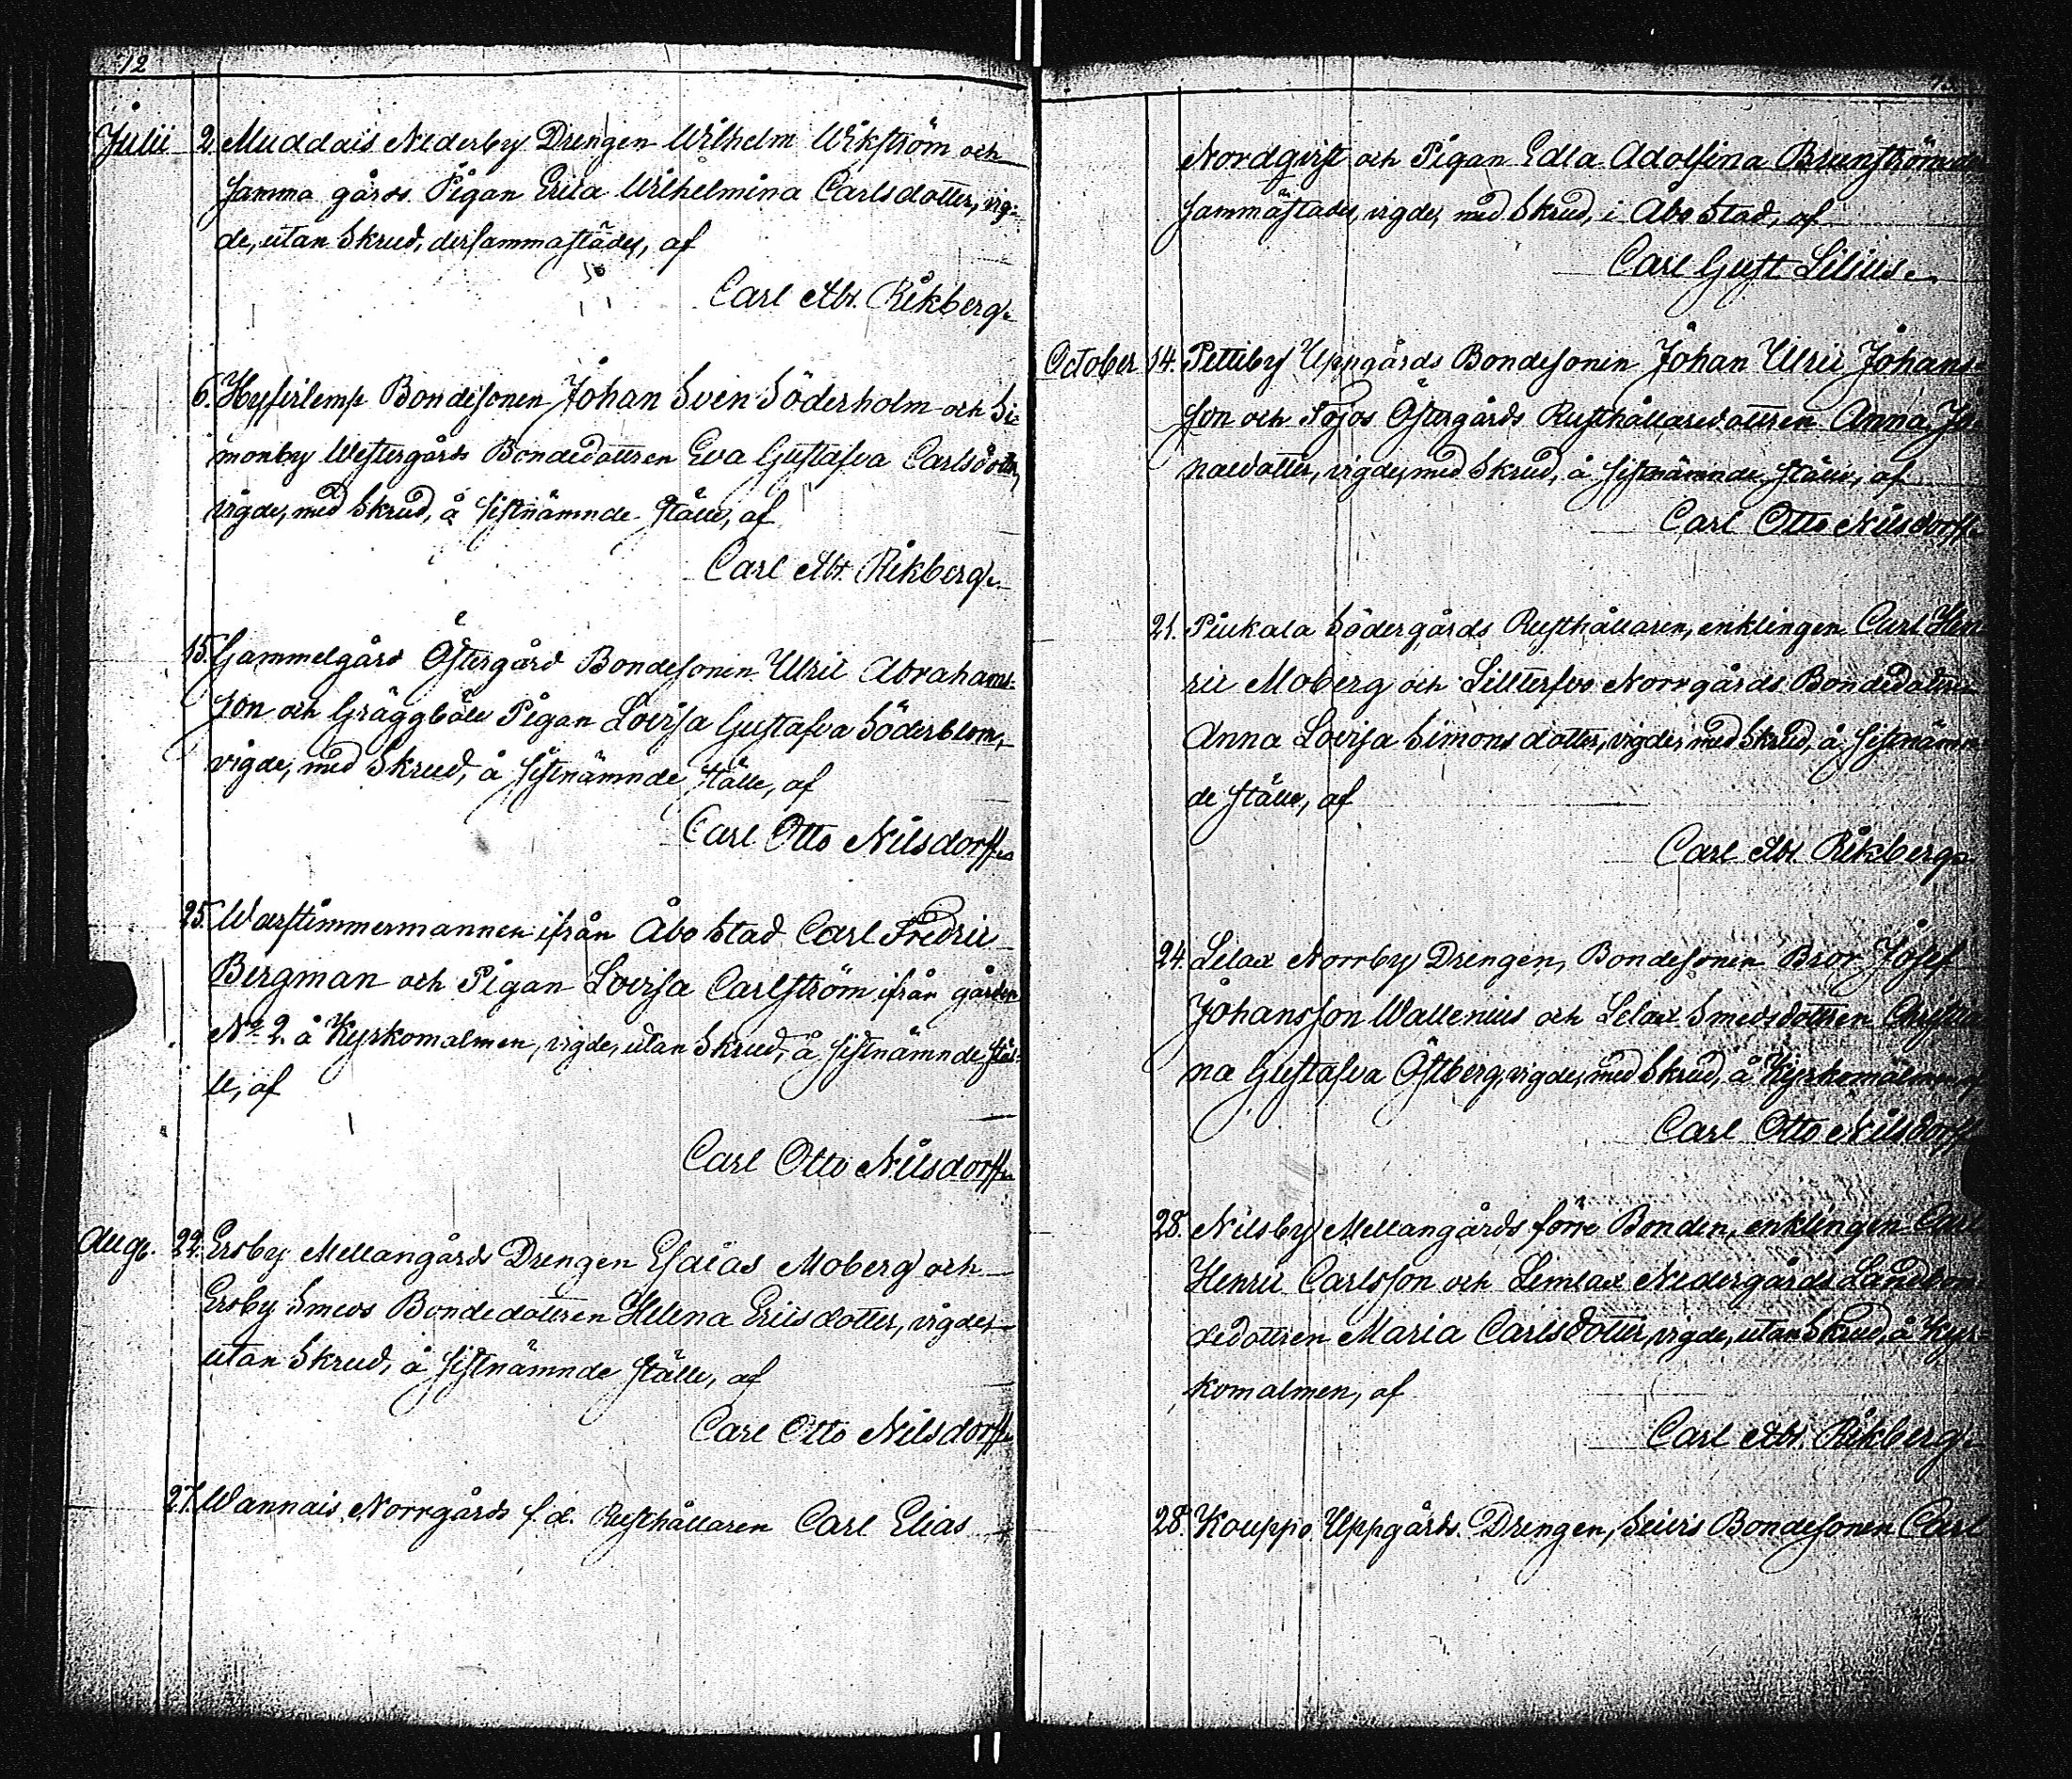 12
Julii 2. Muddais Nederby Drengen Wilhelm Wikström och
samma gårds Pigan Erica Wilhelmina Carlsdotter, vig-
de, utan Skrud, dersammastädes, af
Carl Abr. Rikberg.
6. Hyfirlemp Bondesonen Johan Sven Söderholm och Si
monby Westergårds Bondedottren Eva Gustafva Carlsdotter,
vigde, med Skrud, å sistnämnde ställe, af
Carl Abr. Rikberg.
15. Gammelgård Östergård Bondesonen Ulric Abrahams-
son och Gräggböle Pigan Lovisa Gustafva Söderblom,
vigde, med Skrud, å sistnämnde ställe, af
Carl Otto Nilsdorff.
25. Warftimmermannen ifrån Åbo Stad Carl Fredric
Bergman och Pigan Lovisa Carlström ifrån gården
No 2 å Kyrkomalmen, vigde, utan Skrud, å sistnämnde stäl-
le, af
Carl Otto Nilsdorff.
Aug. 22. Ersby Mellangårds Drengen Esaias Moberg och
Ersby Smeds Bondedottren Helena Ericsdotter, vigde,
utan Skrud, å sistnämnde ställe, af
Carl Otto Nilsdorff.
27. Wannais Norrgårds f.d. Rusthållaren Carl Elias
Nordqvist och Pigan Edla Adolfina Brunström der
sammastädes, vigde, med Skrud, i Åbo Stad, af
Carl Gust Lilius.
October 14. Pettiby Uppgårds Bondesonen Johan Ulric Johans-
son och Tojos Östergårds Rusthållaredottren Anna Jo
naedotter, vigde, med Skrud, å sistnämnde ställe, af
Carl Otto Nilsdorff.
21. Piukala Södergårds Rusthållaren, enklingen Carl Hen
ric Moberg och Sillterfvo Norrgårds Bondedottren
Anna Lovisa Simonsdotter, vigde, med Skrud, å sistnämn
de ställe, af
Carl Abr. Rikberg.
24. Lelax Norrby Drengen, Bondesonen Bror Josef
Johansson Wallenius och Lelax Smedsdottren Christi
na Gustafva Östberg, vigde, med Skrud, å Kyrkomalmen, af
Carl Otto Nilsdorff
28. Nilsby Mellangårds förre Bonden, enklingen Carl
Henric Carlsson och Lemlax Nedergårds Landbon
dedottren Maria Carlsdotter, vigde, utan Skrud, å Kyr-
komalmen, af
Carl Abr. Rikberg.
28. Kouppo Uppgårds Drengen, Seivis Bondesonen Carl